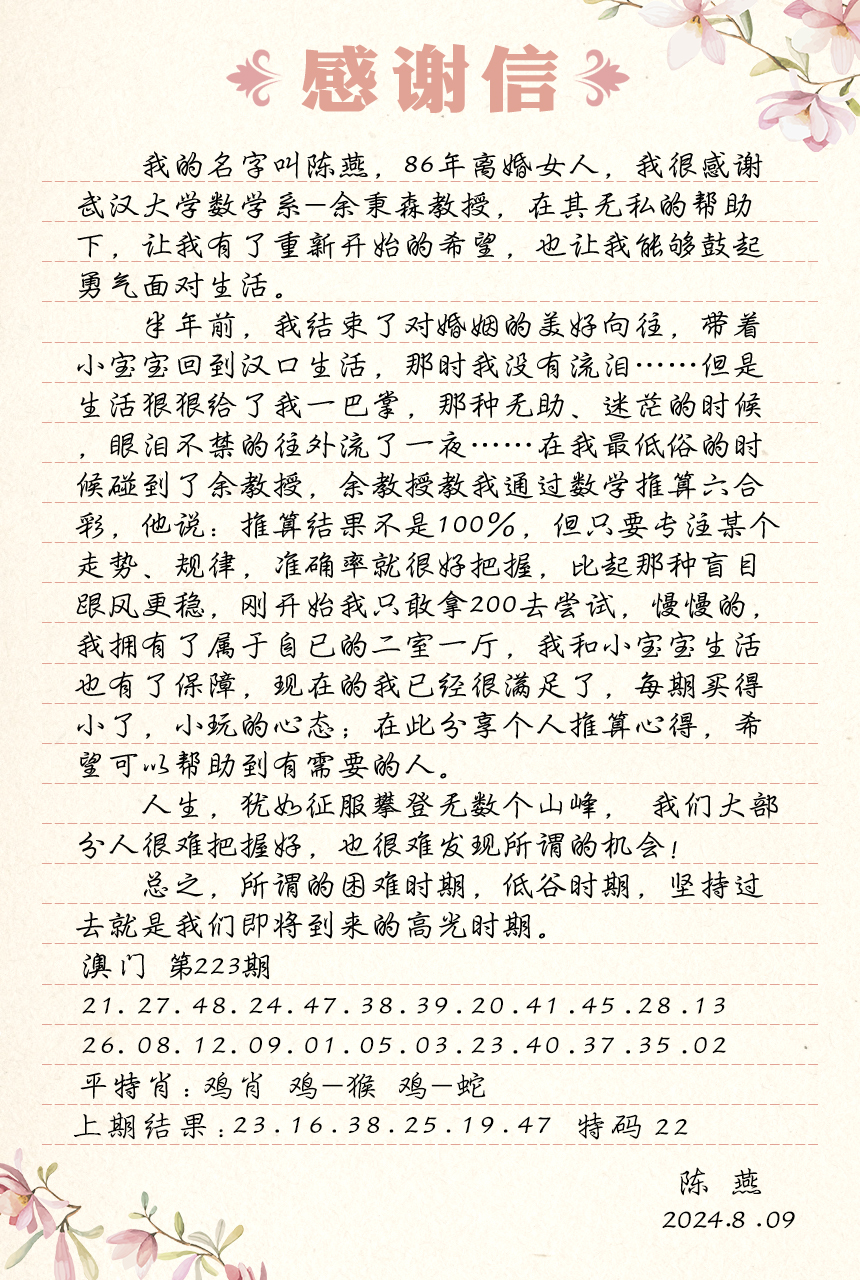 感谢信
我的名字叫陈燕，86年离婚女人，我很感谢
武汉大学数学系—余秉森教授，在其无私的帮助
下，让我有了重新开始的希望，也让我能够鼓起
勇气面对生活。
半年前，我结束了对婚姻的美好向往，带着
小宝宝回到汉口生活，那时我没有流泪……但是
生活狠狠给了我一巴掌，那种无助、迷茫的时候
，眼泪不禁的往外流了一夜……在我最低俗的时
候碰到了余教授，余教授教我通过数学推算六合
彩，他说：推算结果不是100%，但只要专注某个
走势、规律，准确率就很好把握，比起那种盲目
跟风更稳，刚开始我只敢拿200去尝试，慢慢的，
我拥有了属于自已的二室一厅，我和小宝宝生活
也有了保障，现在的我已经很满足了，每期买得
小了，小玩的心态；在此分享个人推算心得，希
望可以帮助到有需要的人。
人生，犹如征服攀登无数个山峰， 我们大部
分人很难把握好，也很难发现所谓的机会！
总之，所谓的困难时期，低谷时期，坚持过
去就是我们即将到来的高光时期。
澳门 第223期
21.27.48.24.47.38.39.20.41.45.28.13
26.08.12.09.01.05.03.23.40.37.35.02
平特肖：鸡肖 鸡—猴 鸡—蛇
上期结果：23.16.38.25.19.47 特码 22
陈 燕
2024.8.09